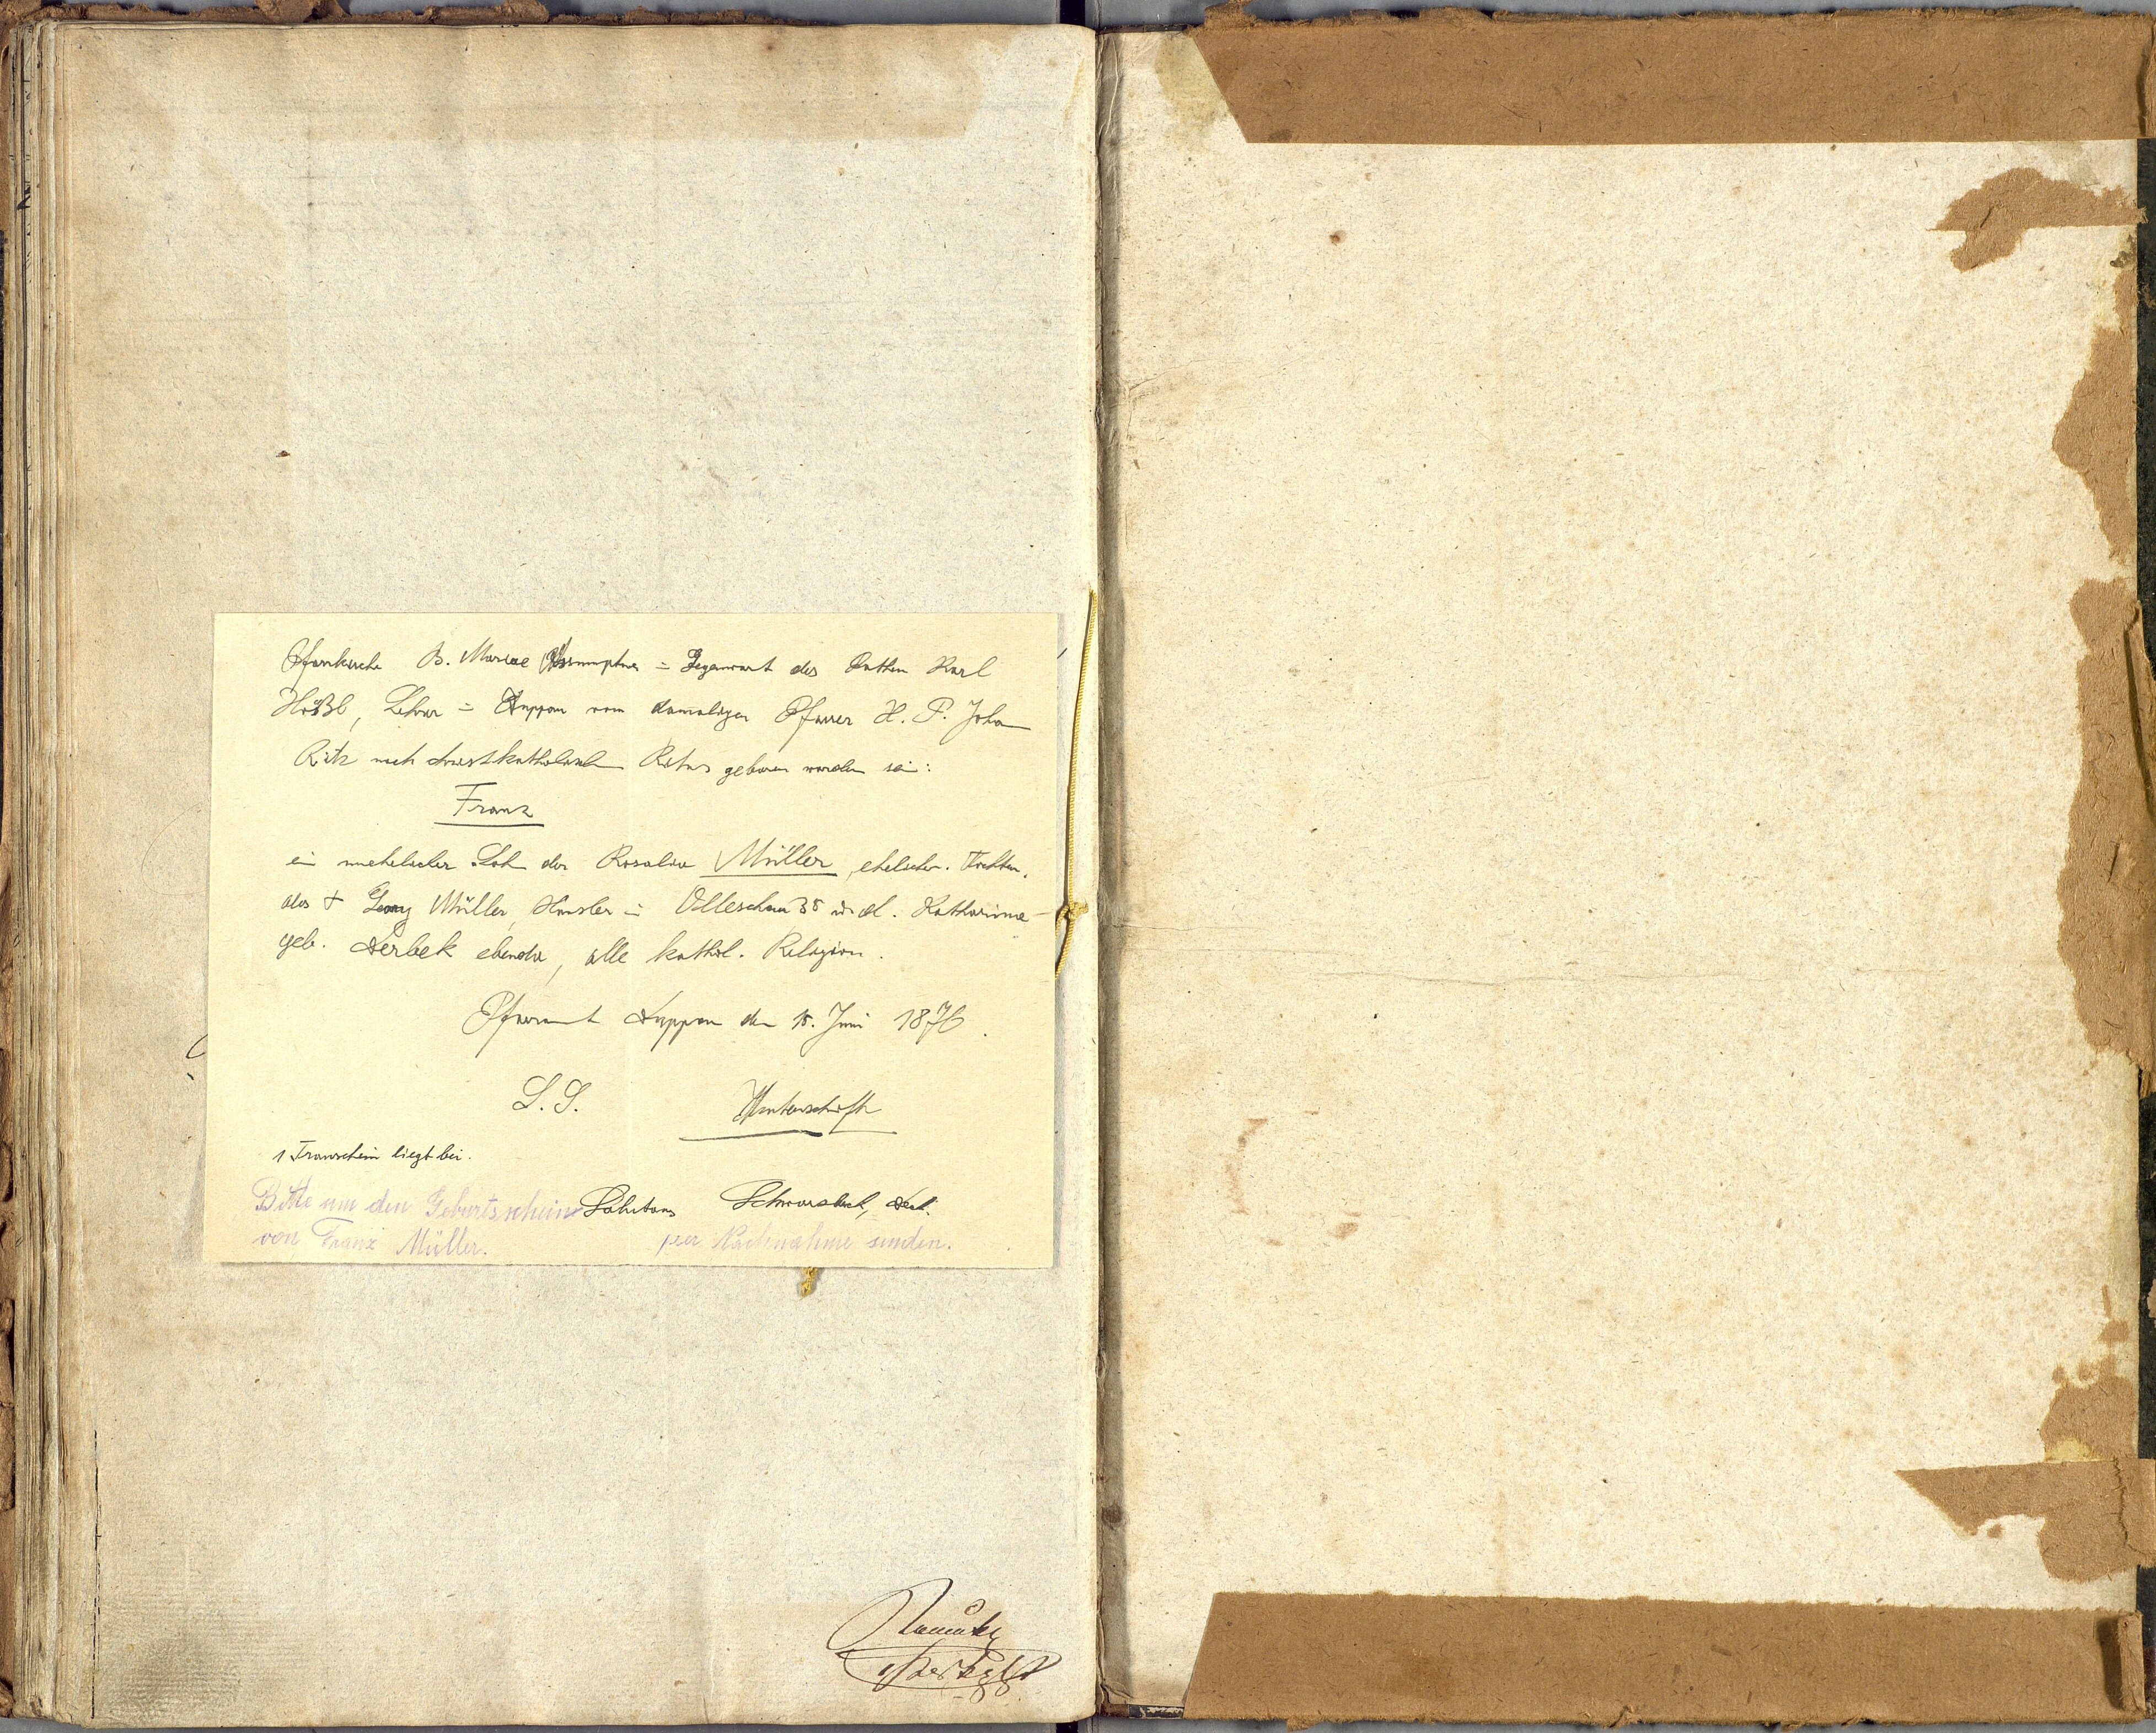 Pfarrkirche B. Mariae Assumptae = Gegenwart des Pathen Karl
Hößl, Lehrer = Duppau vom damaligen Pfarrer H. P. Joha
Ritz nach christkatholisch Ritus geboren worden sei:
Franz
ein unehelicher Soh der Rosalia Müller, ehelicher Tochter
des + Georg Müller, Häusler in Olleschau 35 u. d. Katharina
geb. Derbek ebenda, alle kathol. Religion.
Pfarramt Duppau den 15. Juni 1876.
L. S. Unterschrift
1 Trauschein liegt bei.
Bitte um den Geburtsschein Schwarzbach, Dech.
von Franz Müller. per Nachnahme senden.